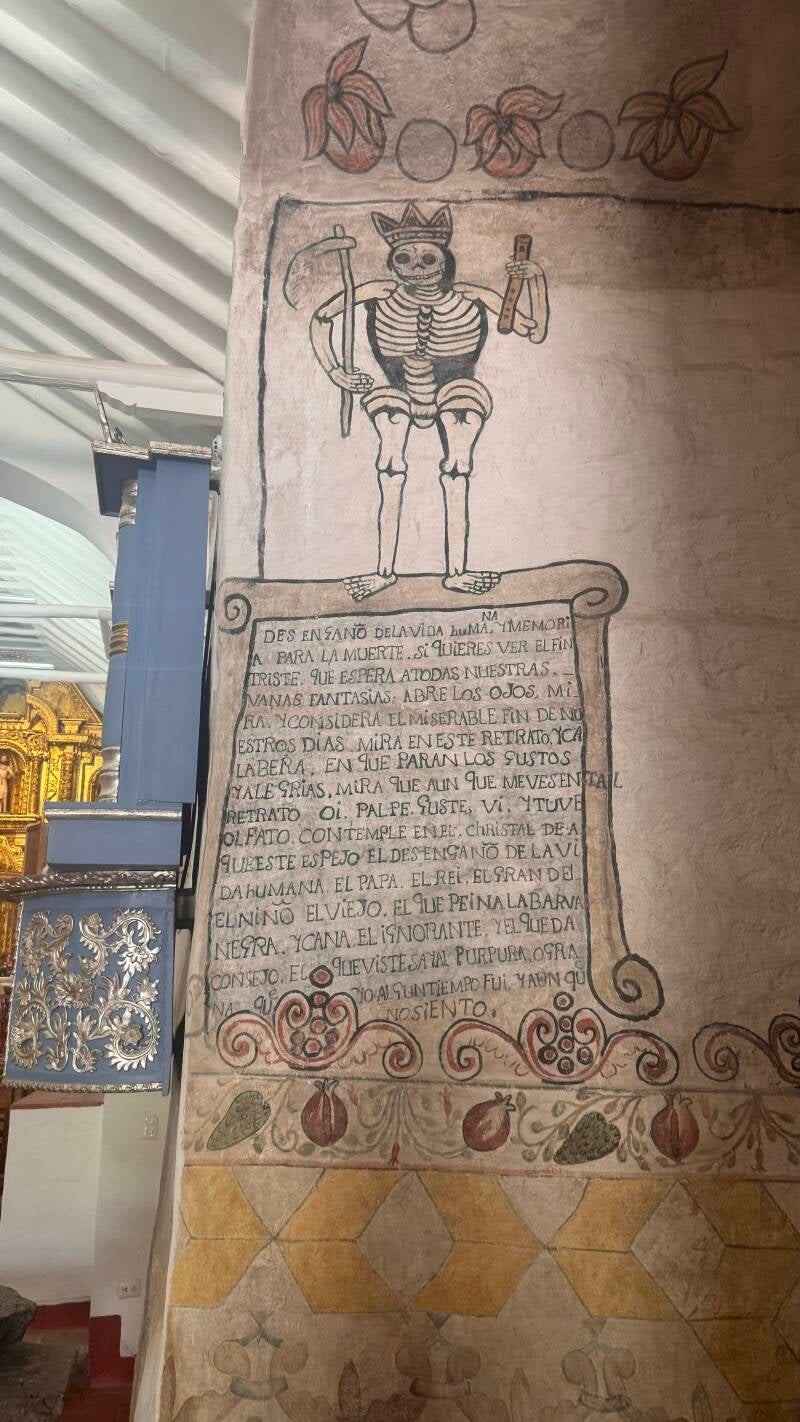 DESENGAÑO DELAVIDA huMANA, YMEMORI
A PARA LA MUERTE. SI QUIERES VER ELFIN
TRISTE. QUE ESPERA ATODAS NUESTRAS.
VANAS FANTASIAS, ABRE LOS OJOS, MI-
RA, YCONSIDERA EL MISERABLE FIN DE NU
ESTROS DIAS. MIRA EN ESTE RETRATO, YCA
LABERA, EN QUE PARAN LOS GUSTOS
YALEGRIAS. MIRA QUE AUN QUE MEVES EN TAL
RETRATO OI. PALPE. GUSTE, VI. YTUVE
OLFATO. CONTEMPLE EN EL, ChRISTAL DE A
QUESTE ESPEJO EL DESENGAÑO DE LA VI
DA hUMANA. EL PAPA. EL REI. EL GRANDE
EL NIÑO EL VIEJO. EL QUE PEINA LA BARVA
NEGRA. YCANA. EL IGNORANTE, YEL QUE DA
CONSEJO. EL QUE VISTE SAYAL PURPURA, O GRA
NA QE YO ALGUN TIEMPO FUI, YAUN QU
NO SIENTO.